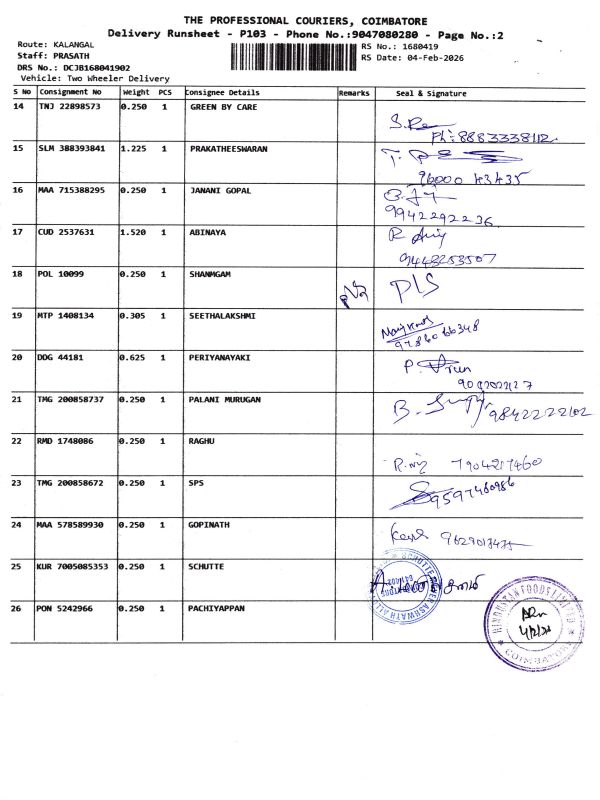 THE PROFESSIONAL COURIERS, COIMBATORE
Delivery Runsheet - P103 - Phone No.:9047080280 - Page No.:2
Route: KALANGAL
RS No.: 1680419
Staff: PRASATH
RS Date: 04-Feb-2026
DRS No.: DCJB168041902
Vehicle: Two Wheeler Delivery
S No Consignment No Weight PCS Consignee Details Remarks Seal & Signature
14 TNJ 22898573 0.250 1 GREEN BY CARE
Ph: 8883338112
15 SLM 388393841 1.225 1 PRAKATHEESWARAN
96000 43435
16 MAA 715388295 0.250 1 JANANI GOPAL
9942292236
17 CUD 2537631 1.520 1 ABINAYA
9443253507
18 POL 10099 0.250 1 SHANMGAM
PLS
19 MTP 1408134 0.305 1 SEETHALAKSHMI
9786066348
20 DDG 44181 0.625 1 PERIYANAYAKI
21 TMG 200858737 0.250 1 PALANI MURUGAN
9842222102
22 RMD 1748086 0.250 1 RAGHU
7904217460
23 TMG 200858672 0.250 1 SPS
9597480986
24 MAA 578589930 0.250 1 GOPINATH
25 KUR 7005085353 0.250 1 SCHUTTE
26 PON 5242966 0.250 1 PACHIYAPPAN
HINDUSTAN FOODS LIMITED
COIMBATORE